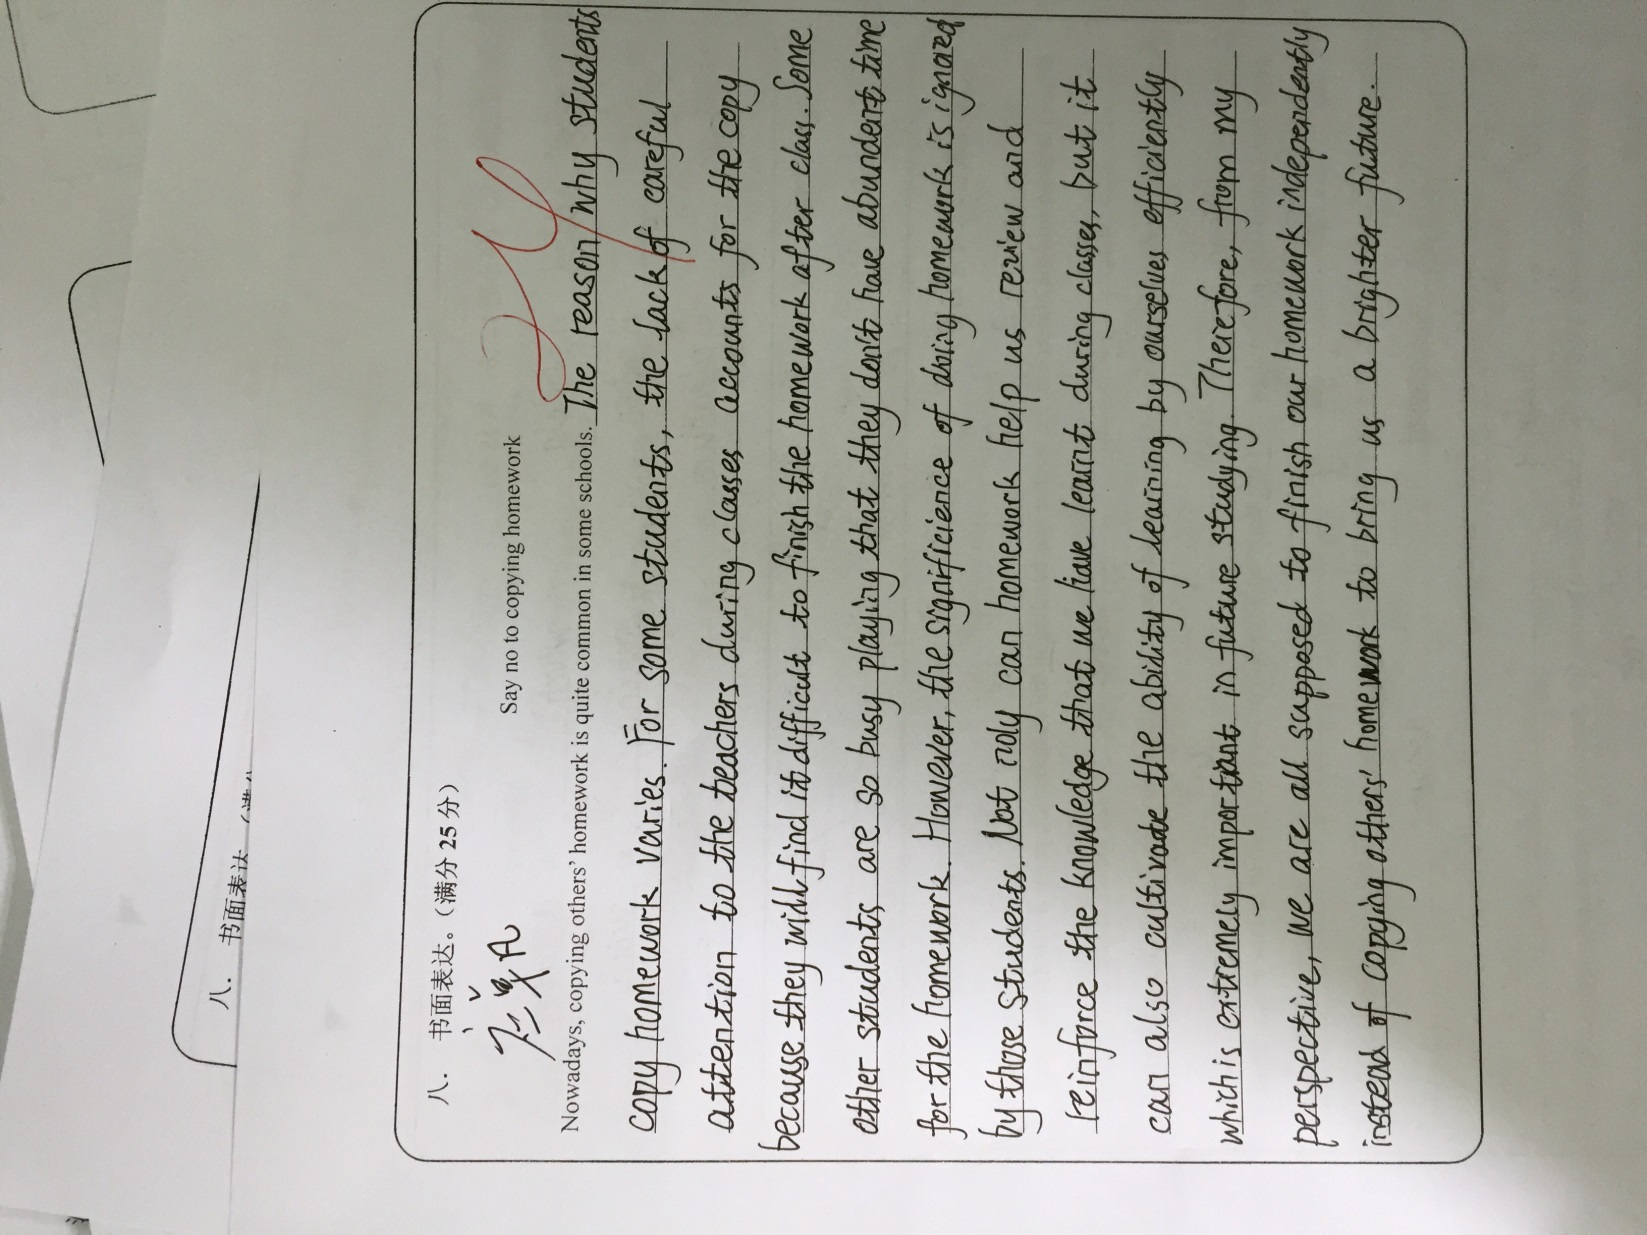 八. 书面表达
八. 书面表达。(满分 25 分)
Say no to copying homework
Nowadays, copying others' homework is quite common in some schools. The reason why students
copy homework varies. For some students, the lack of careful
attention to the teachers during classes accounts for the copy
because they will find it difficult to finish the homework after class. Some
other students are so busy playing that they don't have abundent time
for the homework. However, the significience of doing homework is ignored
by those students. Not only can homework help us review and
reinforce the knowledge that we have learnt during classes, but it
can also cultivate the ability of learning by ourselves efficiently
which is extremely important in future studying. Therefore, from my
perspective, we are all supposed to finish our homework independently
instead of copying others' homework to bring us a brighter future.